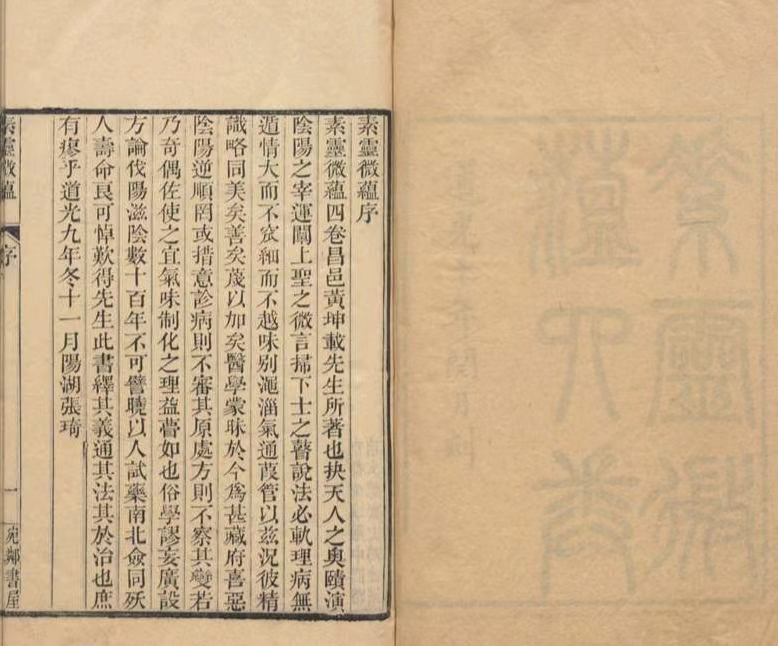 素靈微蘊序
素靈微蘊四卷昌邑黃坤載先生所著也抉天人之奥賾演
陰陽之宰運闡上聖之微言掃下士之瞽說法必軌理病無
遁情大而不窕細而不越味别澠淄氣通葭管以茲況彼精
識略同美矣善矣蔑以加矣醫學蒙昧於今爲甚藏府喜惡
陰陽逆順罔或措意診病則不審其原處方則不察其變若
乃奇偶佐使之宜氣味制化之理益瞢如也俗學謬妄廣設
方論伐陽滋陰數十百年不可譬曉以人試藥南北僉同殀
人壽命良可悼歎得先生此書繹其義通其法其於治也庶
有瘳乎道光九年冬十一月陽湖張琦
素靈微蘊
序
一
宛鄰書屋